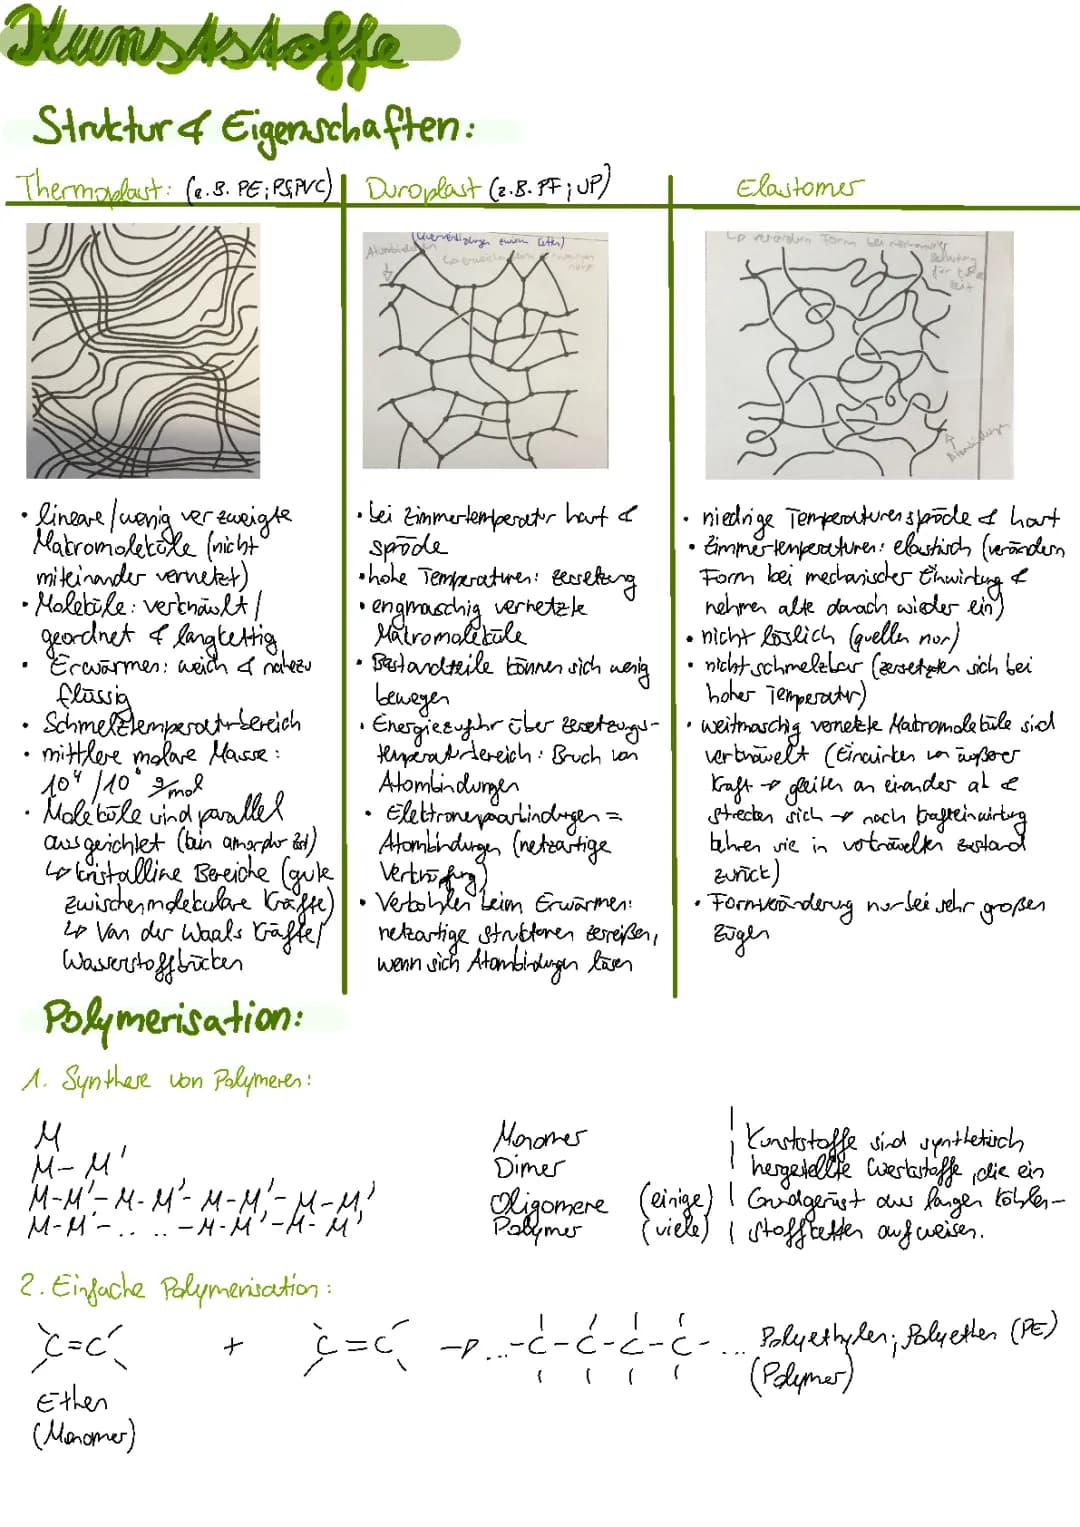 Kunststoffe
Struktur & Eigenschaften:
Thermoplast: (z.B. PE; PS, PVC)
• lineare/wenig verzweigte
Makromoleküle (nicht
miteinander vernetzt)
• Moleküle: verknäult/
geordnet & langkettig
• Erwärmen: weich & nahezu
flüssig
• Schmelztemperaturbereich
• mittlere molare Masse:
10⁴/10⁶ g/mol
• Moleküle sind parallel
ausgerichtet
↳ kristalline Bereiche (gute
zwischenmolekulare Kräfte)
↳ Van der Waals Kräfte/
Wasserstoffbrücken
Duroplast (z.B. PF; UP)
Atombindungen
• bei Zimmertemperatur hart &
spröde
• hohe Temperaturen: Zersetzung
• engmaschig vernetzte
Makromoleküle
• Bestandteile können sich wenig
bewegen
• Energiezufuhr über Zersetzungs-
temperaturbereich: Bruch von
Atombindungen
• Elektronenpaarbindungen =
Atombindungen (netzartige
Verknüpfung)
• Verkohlen beim Erwärmen:
netzartige Strukturen zerreißen,
wenn sich Atombindungen lösen
Elastomer
↳ verändern Form bei mechanischer
Belastung
für kurze
Zeit
Atombindungen
• niedrige Temperaturen spröde & hart
• Zimmertemperaturen: elastisch (verändern
Form bei mechanischer Einwirkung &
nehmen alte danach wieder ein)
• nicht löslich (quellen nur)
• nicht schmelzbar (zersetzten sich bei
hoher Temperatur)
• weitmaschig vernetzte Makromoleküle sind
verknäuelt (Einwirken von äußerer
Kraft → gleiten an einander ab &
strecken sich → nach Krafteinwirkung
kehren sie in verknäuelten Zustand
zurück)
• Formveränderung nur bei sehr großen
Zügen
Polymerisation:
1. Synthese von Polymeren:
M Monomer
M-M' Dimer
M-M'-M-M'-M-M'-M-M' Oligomere (einige)
M-M'-.. ..-M-M'-M-M' Polymer (viele)
Kunststoffe sind synthetisch
hergestellte Werkstoffe, die ein
Grundgerüst aus langen Kohlen-
stoffketten aufweisen.
2. Einfache Polymerisation:
C=C + C=C → ...-C-C-C-C-... Polyethylen; Polyethen (PE)
(Polymer)
Ethen
(Monomer)